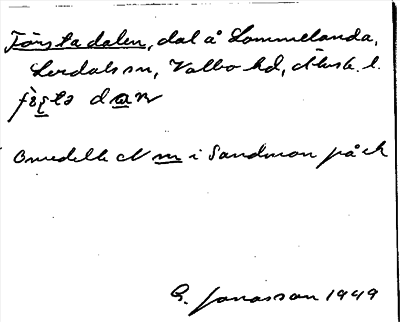 Första dalen, dal å Lommelanda,
Lerdals sn, Valbo hd, Älvsb. l.
fœ̀ṣta da̲n
Omedelb. N m i Sandmon på ek
G. Jonasson 1949